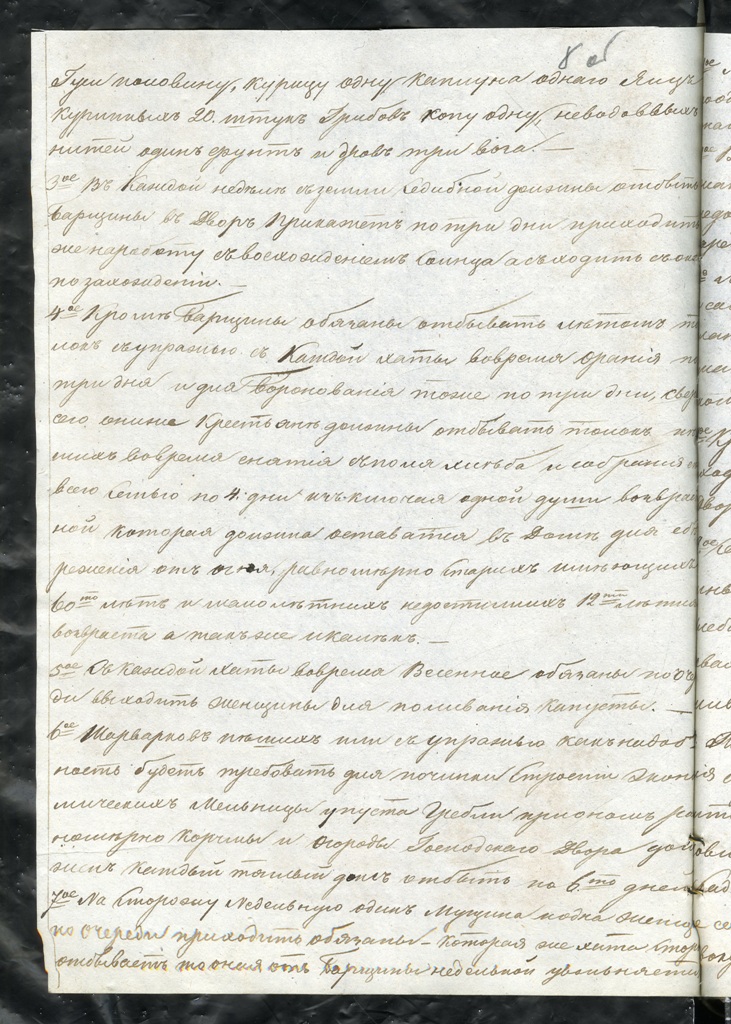 8 об
Гуси половину, курицу одну каплуна однаго Яицъ
Куринныхъ 20. штукъ Грибовъ копу одну, неводоввыхъ
нитей одинъ фунтъ и дровъ три воза. —
3ое Въ Каждой неделѣ съ земли Седибной должны отбыть
барщины въ Дворъ Прикажетъ по три дни приходить
же на работу съ восхожденіемъ Солнца а съ ходить съ оной
по захожденіи. —
4ое Кромѣ Барщины обязаны отбывать лѣтомъ то
локъ съ упражью съ Каждой хаты вовремя оранія по
три дня и для Боронованія тоже по три дни, сверхъ
сего оныие Крестьяне должны отбывать толокъ пѣ
шихъ вовремя снятія съ поля хлѣба и собранія со
всею Семьею по 4. дни изъ ключая одной души возвра
ной которая должна оставатся въ Домѣ для сбе
реженія отъ огня, равномѣрно Старыхъ имѣющихъ
60то лѣтъ и малолѣтнихъ недостигшихъ 12ти лѣтня
возвраста а такъ же и калѣкъ. —
5ое Съ каждой хаты вовремя Весенное обязаны по оче
ди выходить женщины для поливанія капусты. —
6ое Шарварковъ пѣшихъ или съ упражью какъ надоб
ность будетъ требовать для починки Строеніи Эконо
мическихъ Мельницы упуста Гребли при ономъ рав
номѣрно Корчмы и огорода Господскаго Двора дол
женъ каждый тяглый домъ отбыть по 6то дней
7ое На Сторожу Недельную одинъ Мущина и одна женщ
по очереди приходить обязаны — которая же хата Стор
отбываетъ то оная отъ Барщины недельной увольняетс